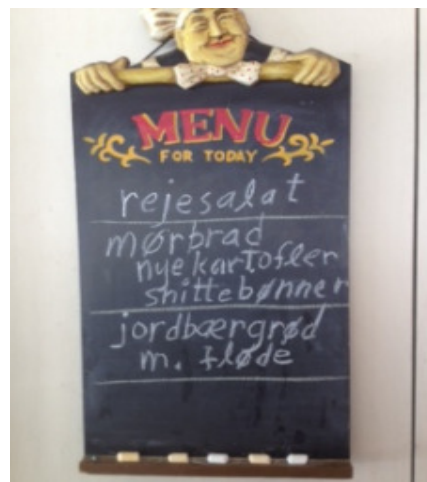 MENU
FOR TODAY
rejesalat
mørbrad
nye kartofler
snittebønner
jordbærgrød
m. fløde